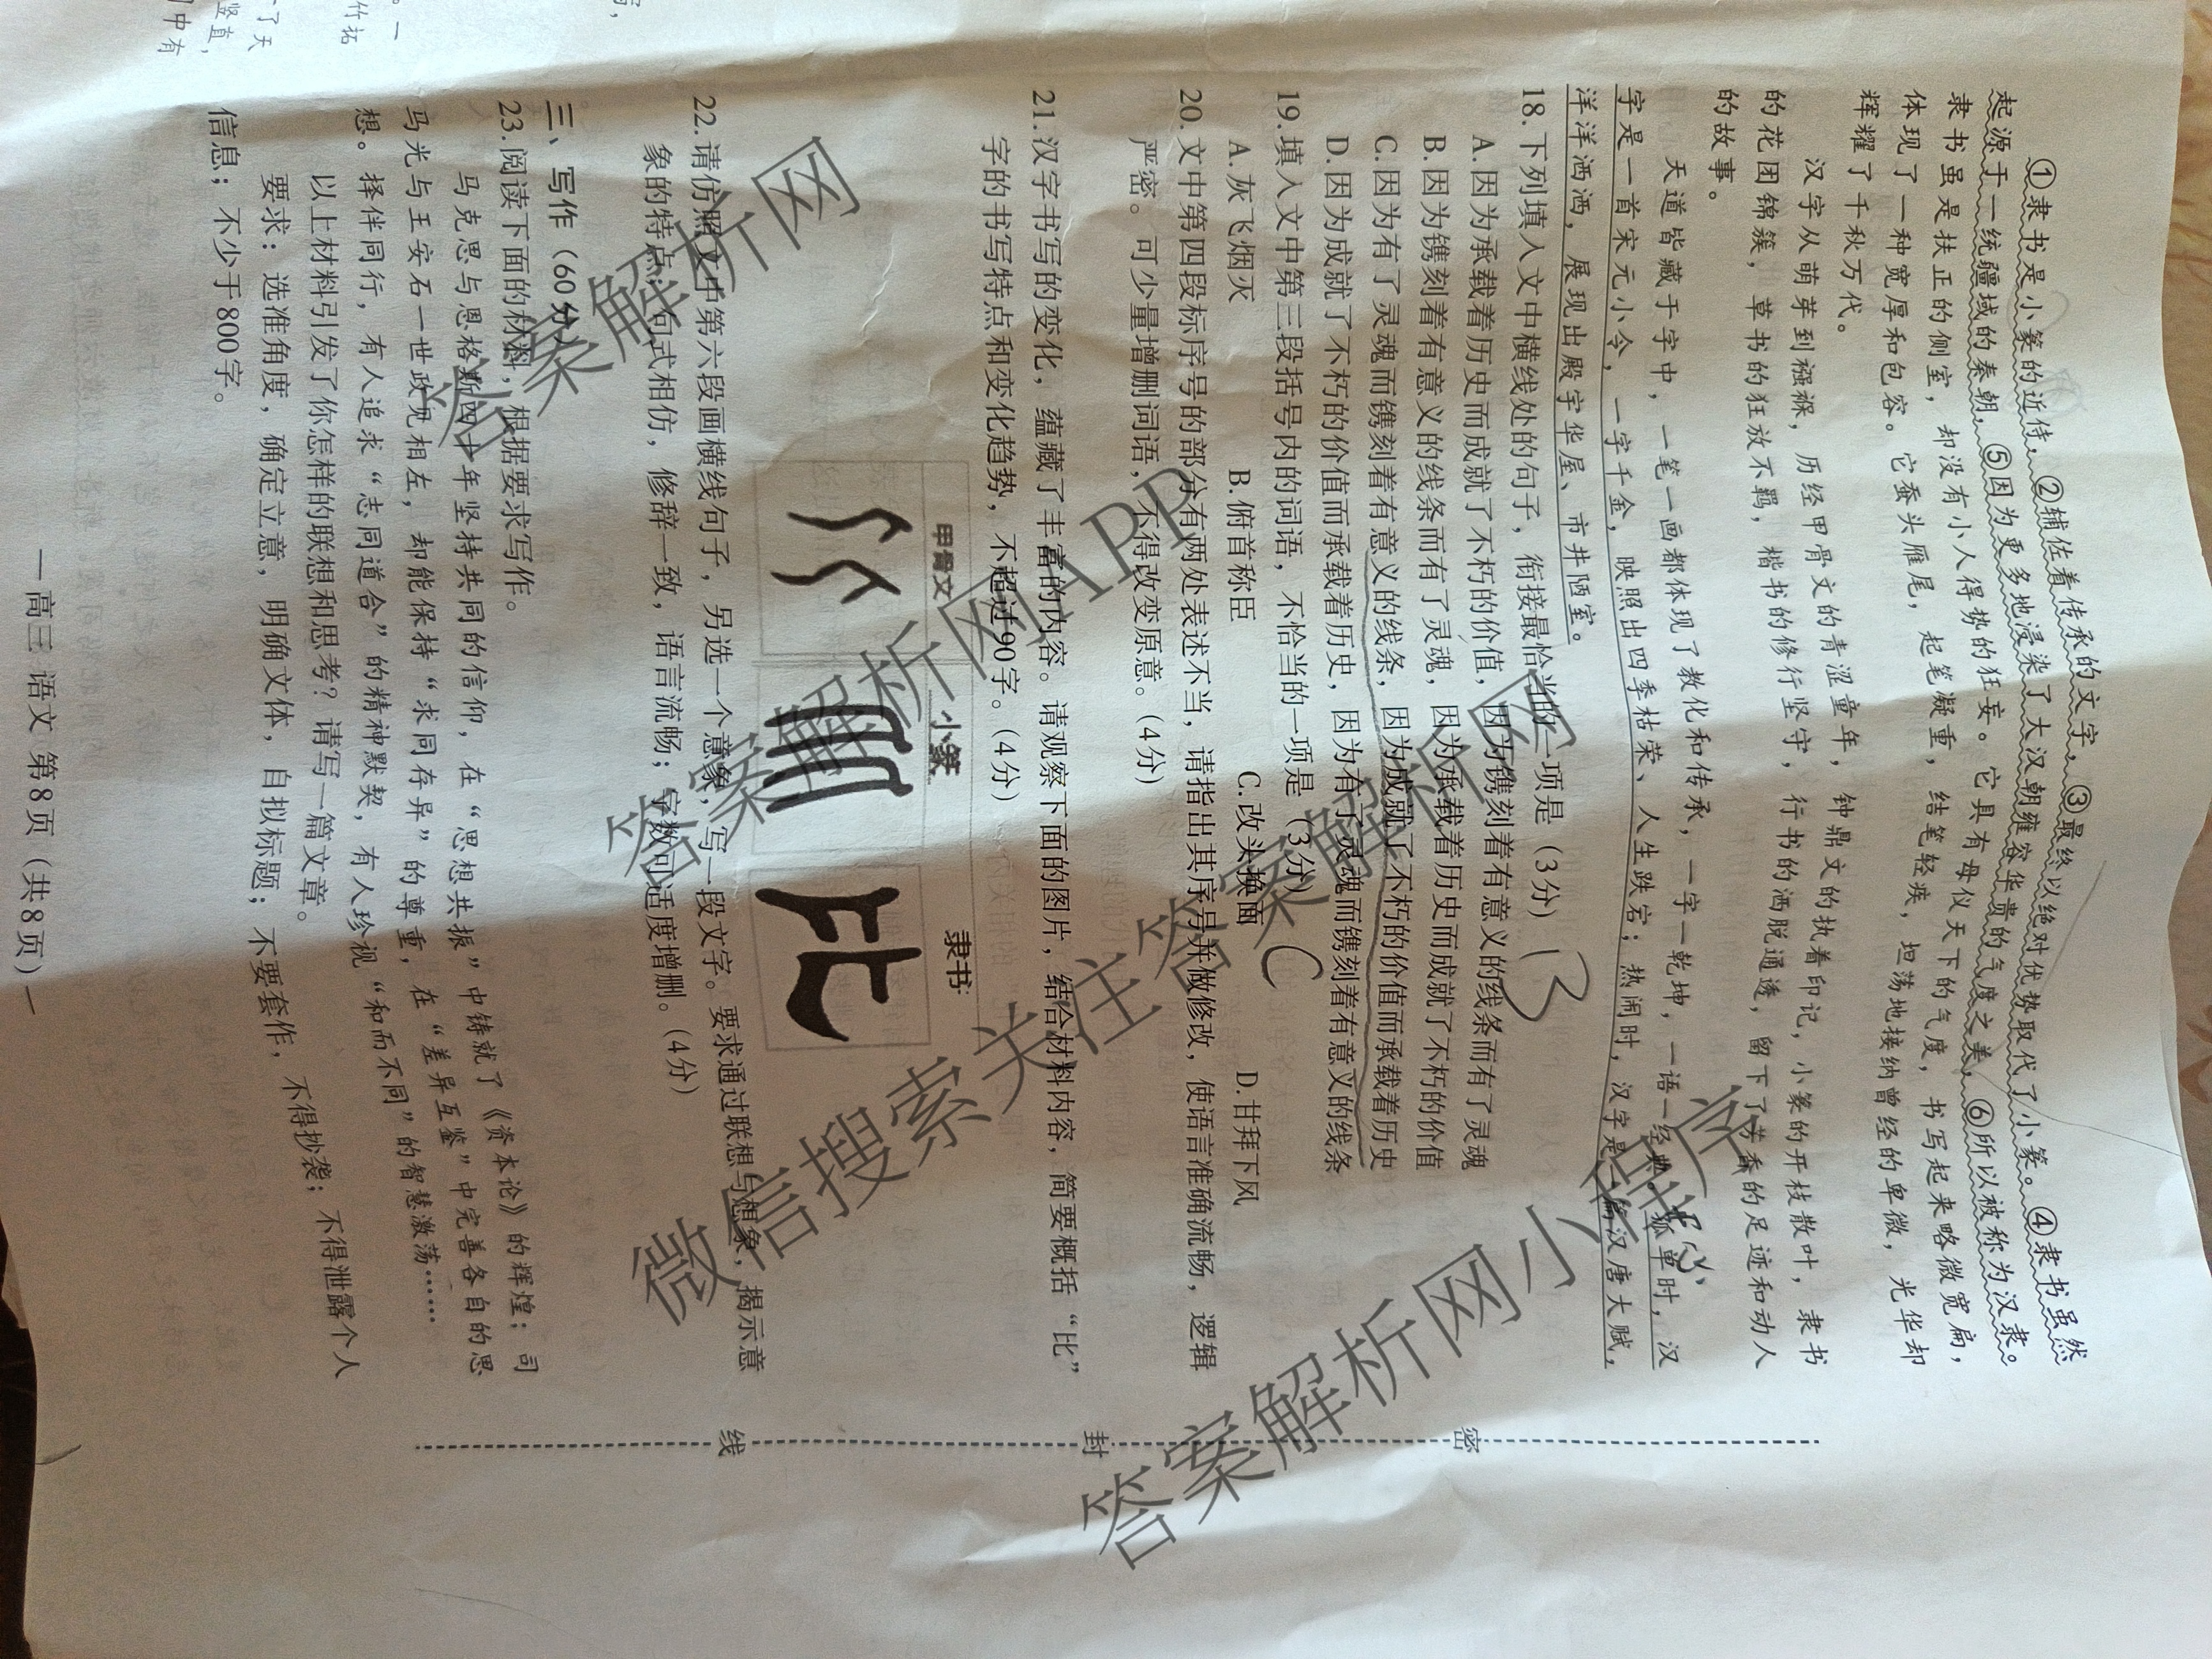 ①隶书是小篆的近侍，②辅佐着传承的文字，③最终以绝对优势取代了小篆。④隶书虽然
起源于一统疆域的秦朝，⑤因为更多地浸染了大汉朝雍容华贵的气度之美，⑥所以被称为汉隶。
隶书虽是扶正的侧室，却没有小人得势的狂妄。它具有母仪天下的气度，书写起来略微宽扁，
体现了一种宽厚和包容。它蚕头雁尾，起笔凝重，结笔轻疾，坦荡地接纳曾经的卑微，光华却
辉耀了千秋万代。
汉字从萌芽到襁褓，历经甲骨文的青涩童年，钟鼎文的执着印记，小篆的开枝散叶，隶书
的花团锦簇，草书的狂放不羁，楷书的修行坚守，行书的洒脱通透，留下了芳香的足迹和动人
的故事。
天道皆藏于字中，一笔一画都体现了教化和传承，一字一乾坤，一语一经典。孤单时，汉
字是一首宋元小令，一字千金，映照出四季枯荣、人生跌宕；热闹时，汉字是一篇汉唐大赋，
洋洋洒洒，展现出殿宇华屋、市井陋室。
18.下列填入文中横线处的句子，衔接最恰当的一项是（3分）B
A.因为承载着历史而成就了不朽的价值，因为镌刻着有意义的线条而有了灵魂
B.因为镌刻着有意义的线条而有了灵魂，因为承载着历史而成就了不朽的价值
C.因为有了灵魂而镌刻着有意义的线条，因为成就了不朽的价值而承载着历史
D.因为成就了不朽的价值而承载着历史，因为有了灵魂而镌刻着有意义的线条
19.填入文中第三段括号内的词语，不恰当的一项是（3分）C
A.灰飞烟灭 B.俯首称臣 C.改头换面 D.甘拜下风
20.文中第四段标序号的部分有两处表述不当，请指出其序号并做修改，使语言准确流畅，逻辑
严密。可少量增删词语，不得改变原意。（4分）
21.汉字书写的变化，蕴藏了丰富的内容。请观察下面的图片，结合材料内容，简要概括“比”
字的书写特点和变化趋势，不超过90字。（4分）
甲骨文 小篆 隶书:
22.请仿照文中第六段画横线句子，另选一个意象，写一段文字。要求通过联想与想象，揭示意
象的特点；句式相仿，修辞一致，语言流畅；字数可适度增删。（4分）
三、写作（60分）
23.阅读下面的材料，根据要求写作。
马克思与恩格斯四十年坚持共同的信仰，在“思想共振”中铸就了《资本论》的辉煌；司
马光与王安石一世政见相左，却能保持“求同存异”的尊重，在“差异互鉴”中完善各自的思
想。择伴同行，有人追求“志同道合”的精神默契，有人珍视“和而不同”的智慧激荡……
以上材料引发了你怎样的联想和思考？请写一篇文章。
要求：选准角度，确定立意，明确文体，自拟标题；不要套作，不得抄袭；不得泄露个人
信息；不少于800字。
—高三 语文 第8页（共8页）—
密
封
线
答案解析网
答案解析网APP
微信搜索关注答案解析网
答案解析网小程序